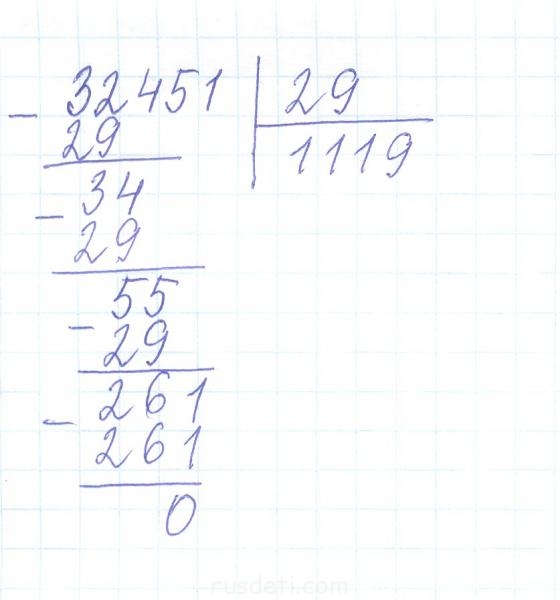 - 32451 | 29
29 1119
- 34
29
55
- 29
261
- 261
0
rusdeti.com